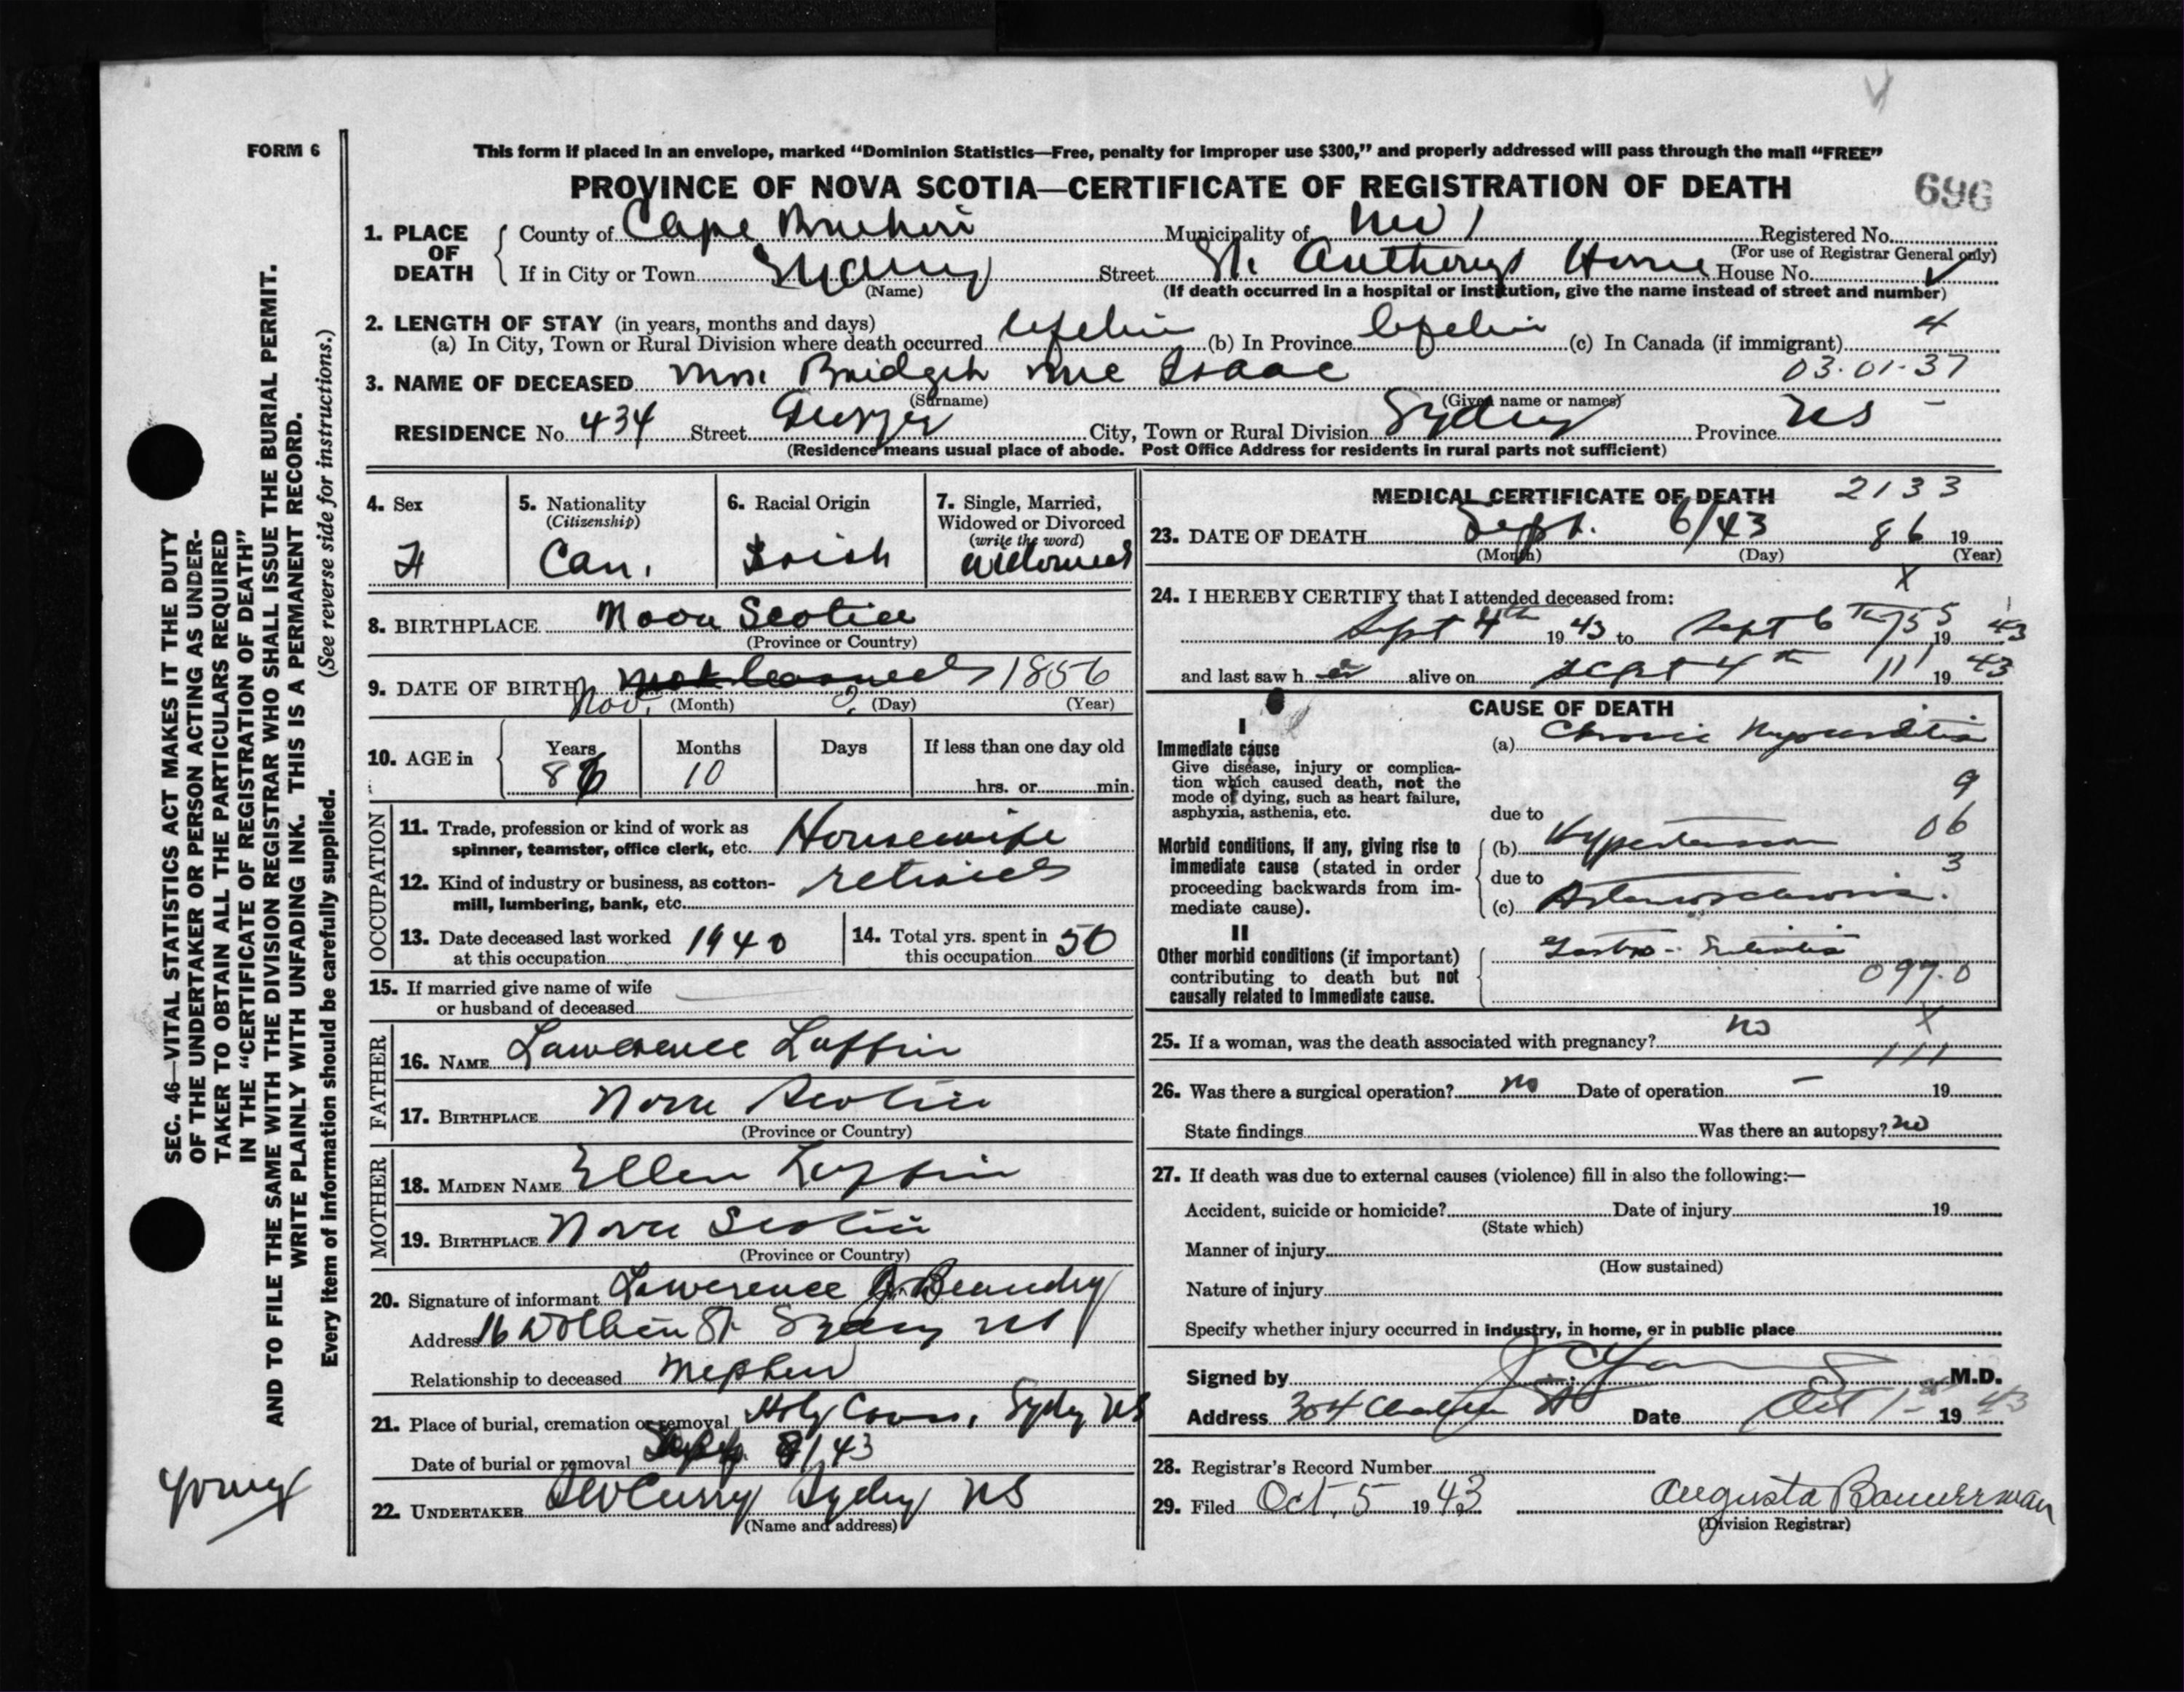 FORM 6
This form if placed in an envelope, marked “Dominion Statistics—Free, penalty for improper use $300,” and properly addressed will pass through the mail “FREE”
PROVINCE OF NOVA SCOTIA—CERTIFICATE OF REGISTRATION OF DEATH
696
1. PLACE OF DEATH
County of Cape Breton Municipality of Registered No.
(For use of Registrar General only)
If in City or Town Sydney Street St. Anthonys Home House No.
(Name)
(If death occurred in a hospital or institution, give the name instead of street and number)
2. LENGTH OF STAY (in years, months and days)
(a) In City, Town or Rural Division where death occurred Lifetime (b) In Province Lifetime (c) In Canada (if immigrant) 4
3. NAME OF DECEASED Mrs. Bridget Mc Isaac 03.01.37
(Surname) (Given name or names)
RESIDENCE No. 434 Street City, Town or Rural Division Sydney Province NS
(Residence means usual place of abode. Post Office Address for residents in rural parts not sufficient)
4. Sex F
5. Nationality (Citizenship) Can.
6. Racial Origin Irish
7. Single, Married, Widowed or Divorced (write the word) Widowed
8. BIRTHPLACE Nova Scotia
(Province or Country)
9. DATE OF BIRTH Nov. ? 1856
(Month) (Day) (Year)
10. AGE in Years 86 Months 10 Days If less than one day old hrs. or min.
OCCUPATION
11. Trade, profession or kind of work as spinner, teamster, office clerk, etc. Housewife
12. Kind of industry or business, as cotton-mill, lumbering, bank, etc. retired
13. Date deceased last worked at this occupation 1940
14. Total yrs. spent in this occupation 50
15. If married give name of wife or husband of deceased
FATHER
16. NAME Lawerence Luffin
17. BIRTHPLACE Nova Scotia
(Province or Country)
MOTHER
18. MAIDEN NAME Ellen Luffin
19. BIRTHPLACE Nova Scotia
(Province or Country)
20. Signature of informant Lawerence J. Beaudry
Address 16 St Sydney NS
Relationship to deceased Nephew
21. Place of burial, cremation or removal Holy Cross, Sydney NS
Date of burial or removal Sept. 8/43
22. UNDERTAKER Curry Sydney NS
(Name and address)
MEDICAL CERTIFICATE OF DEATH 2133
23. DATE OF DEATH Sept. 6/43 86 19
(Month) (Day) (Year)
X
24. I HEREBY CERTIFY that I attended deceased from:
Sept 4th 19 43 to Sept 6th 19 43
and last saw h er alive on Sept 4th 11 19 43
CAUSE OF DEATH
I
Immediate cause
Give disease, injury or complication which caused death, not the mode of dying, such as heart failure, asphyxia, asthenia, etc.
(a) Chronic Myocarditis
9
due to
Morbid conditions, if any, giving rise to immediate cause (stated in order proceeding backwards from immediate cause).
(b) Hypertension 06
due to 3
(c) Arteriosclerosis.
II
Other morbid conditions (if important) contributing to death but not causally related to immediate cause.
Gastro-Enteritis
097.0
25. If a woman, was the death associated with pregnancy? no X
111
26. Was there a surgical operation? no Date of operation – 19
State findings Was there an autopsy? no
27. If death was due to external causes (violence) fill in also the following:—
Accident, suicide or homicide? Date of injury 19
(State which)
Manner of injury
(How sustained)
Nature of injury
Specify whether injury occurred in industry, in home, or in public place
Signed by M.D.
Address 304 Charlotte St Date Oct 1st 19 43
28. Registrar's Record Number
29. Filed Oct. 5 19 43 Augusta Bannerman
(Division Registrar)
SEC. 46—VITAL STATISTICS ACT MAKES IT THE DUTY
OF THE UNDERTAKER OR PERSON ACTING AS UNDER-
TAKER TO OBTAIN ALL THE PARTICULARS REQUIRED
IN THE “CERTIFICATE OF REGISTRATION OF DEATH”
AND TO FILE THE SAME WITH THE DIVISION REGISTRAR WHO SHALL ISSUE THE BURIAL PERMIT.
WRITE PLAINLY WITH UNFADING INK. THIS IS A PERMANENT RECORD.
Every item of information should be carefully supplied. (See reverse side for instructions.)
Young